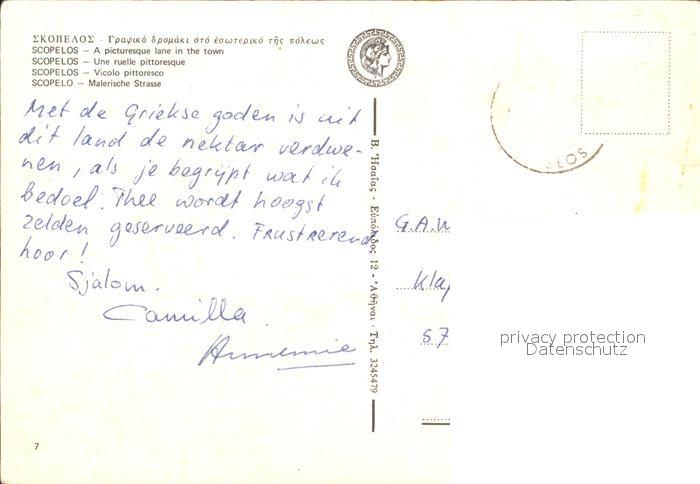 ΣΚΟΠΕΛΟΣ · Γραφικό δρομάκι στό ἐσωτερικό τῆς πόλεως
SCOPELOS – A picturesque lane in the town
SCOPELOS – Une ruelle pittoresque
SCOPELOS – Vicolo pittoresco
SCOPELO – Malerische Strasse
Met de Griekse goden is uit
dit land de nektar verdwe-
nen, als je begrijpt wat ik
bedoel. Thee wordt hoogst
zelden geserveerd. FRUSTREREND
hoor!
Sjalom.
Camilla
Annemie
7
Β. Ἡσαΐας · Εὐπόλιδος 12 - Ἀθῆναι · Τηλ. 3245479
LOS
G.A.W
Kla
57
privacy protection
Datenschutz